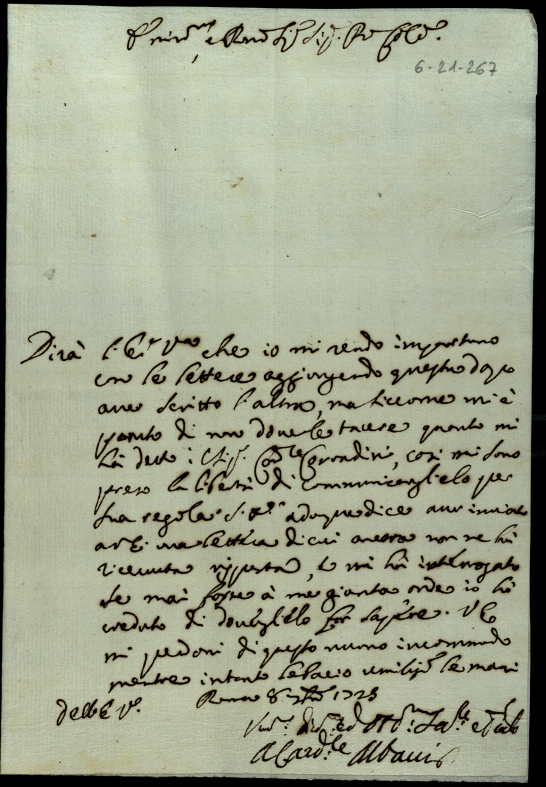 Em.mo, e Rev.mo Sig. Sig. P.ne Col.mo
6-21-267
Dirà l'Em.a V.ra che io mi rendo importuno
con le lettere aggiungendo questa dopo
aver scritto l'altra, ma siccome mi è
parso di non doverle tacere quanto mi
hà detto il Sig. Card.le Corradini, così mi sono
preso la libertà di communicarglielo per
sua regola. S. Em.a adunque dice aver inviato
una lettera di cui ancora non ne hà
ricevuta risposta, e mi hà interrogato
se mai fosse à me giunta onde io hò
creduto di doverglielo far sapere. V.E.
mi perdoni di questo nuovo incommodo
mentre intanto le bacio umiliss.e le mani
Roma 8 1723
dell'E. V.ra
A Card.le Albani